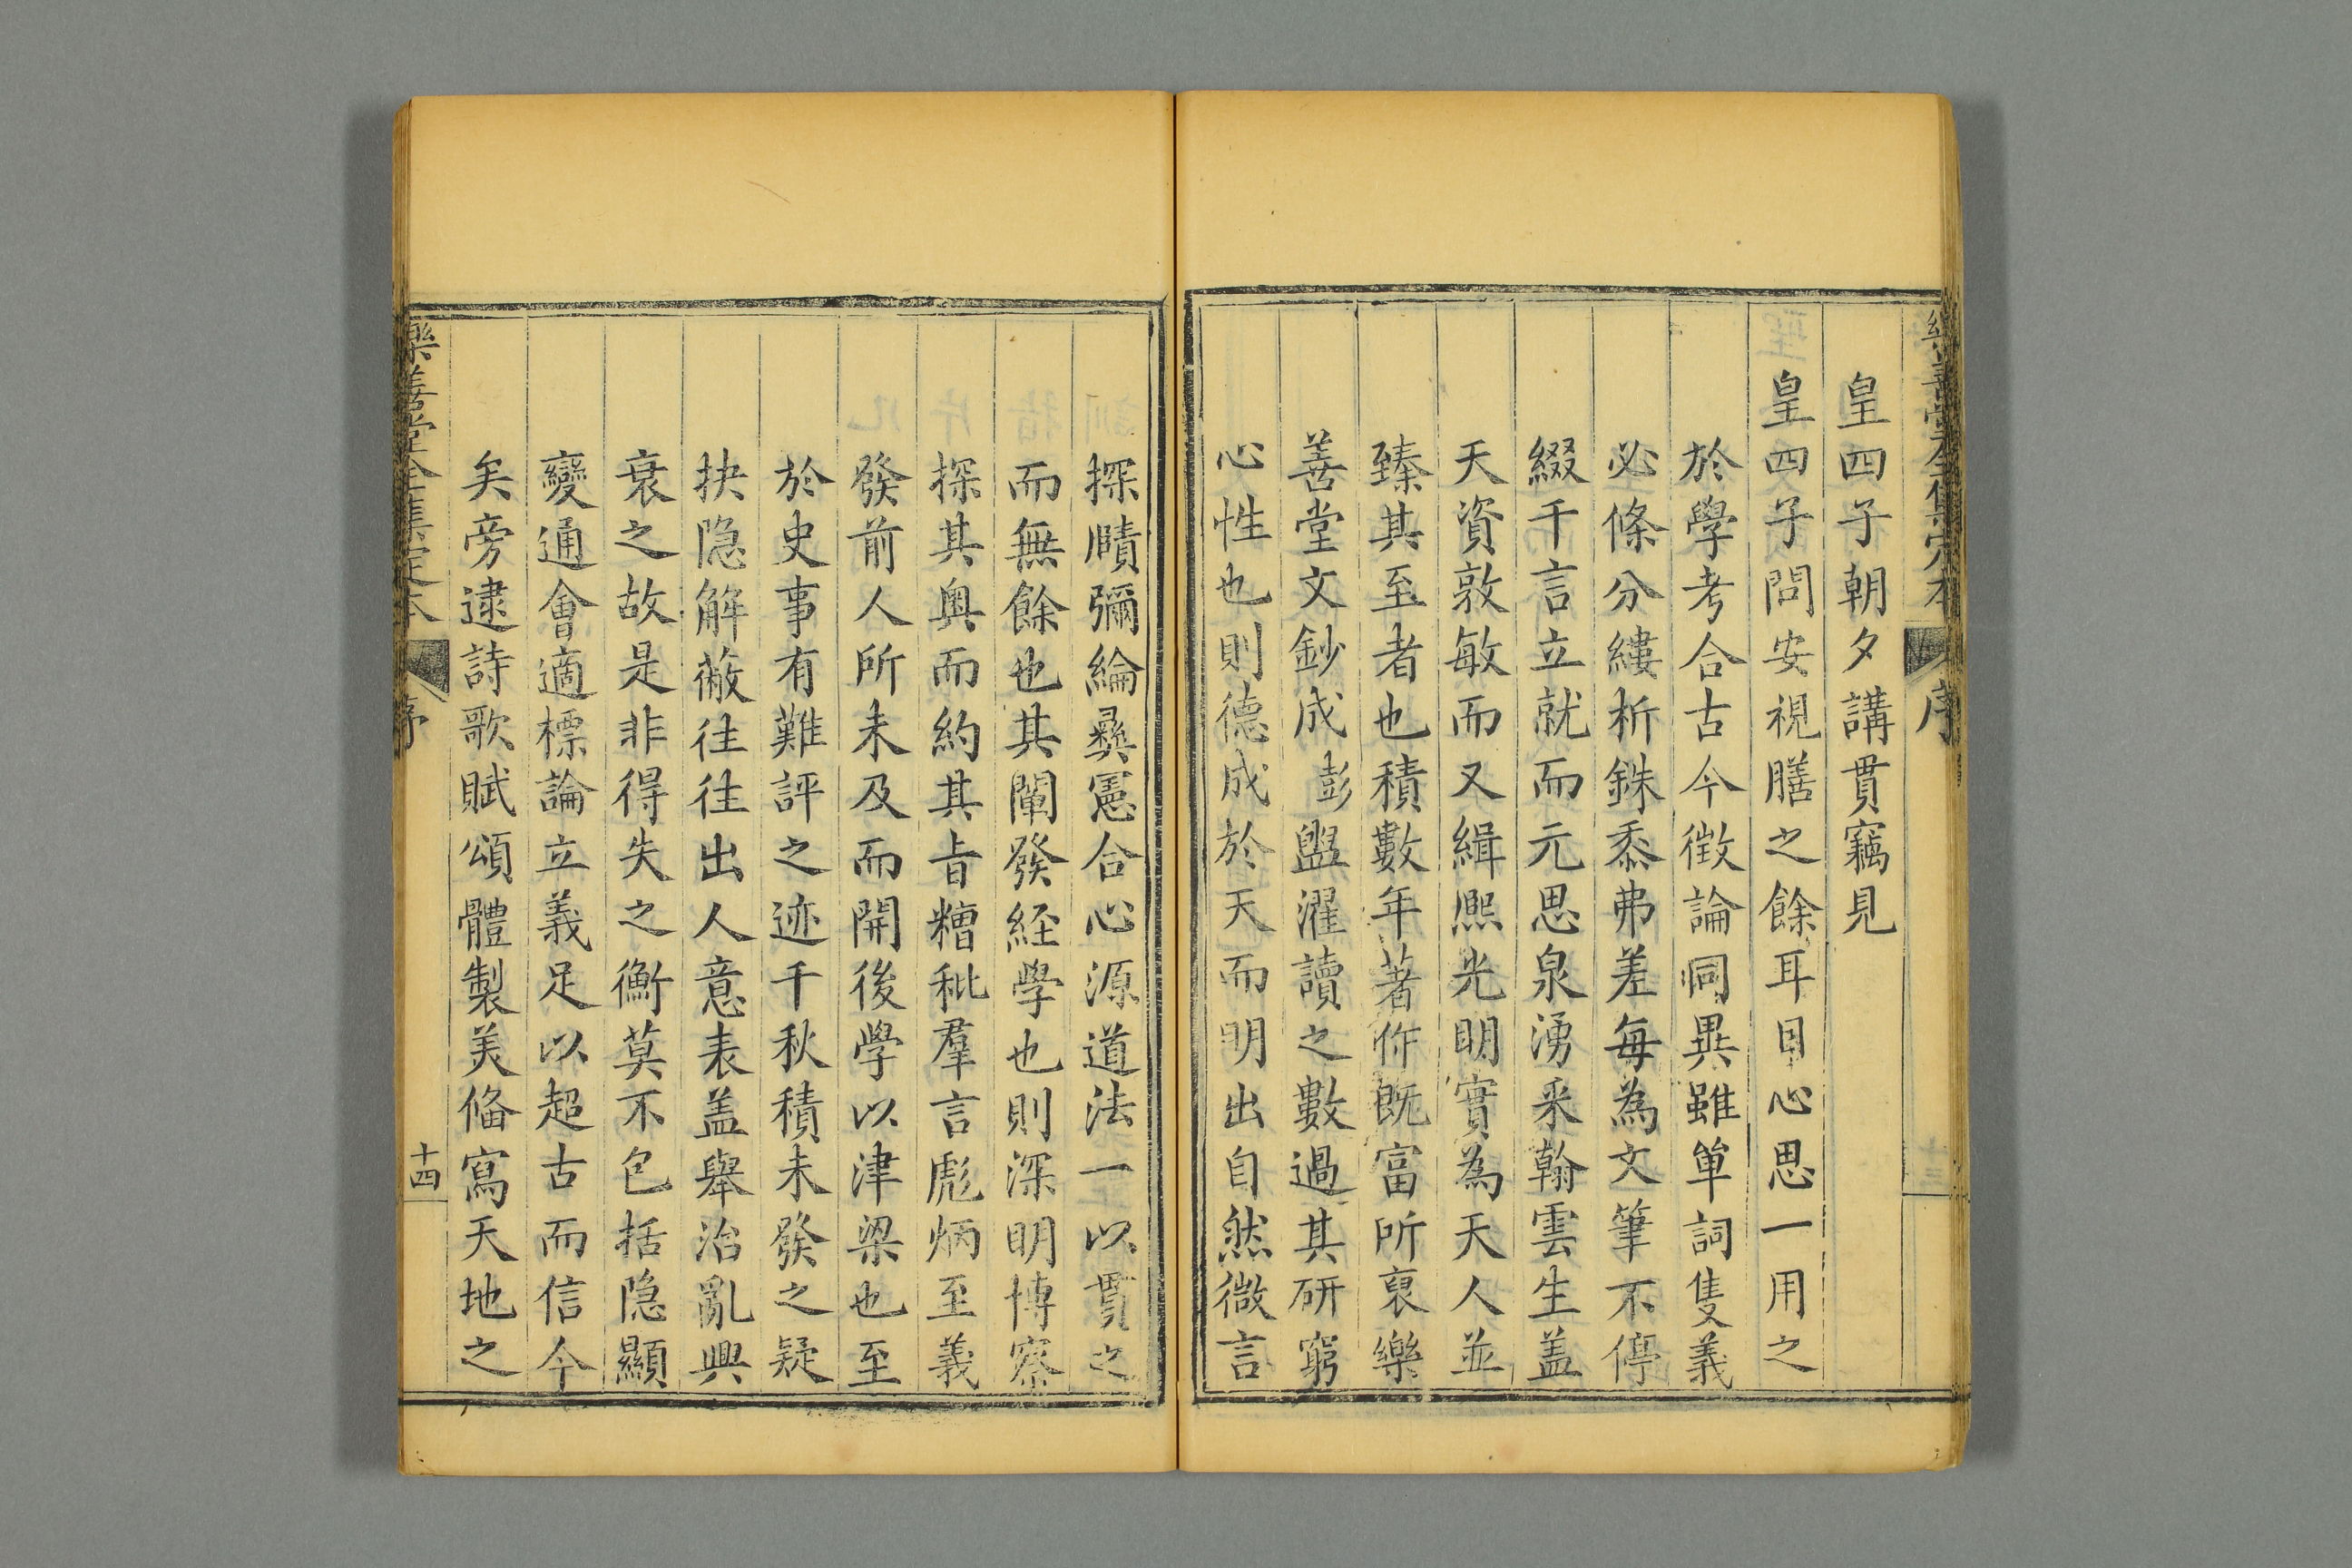 樂善堂全集定本
序
皇四子朝夕講貫竊見
皇四子問安視膳之餘耳目心思一用之
於學考合古今徵論同異雖單詞隻義
必條分縷析銖黍弗差每為文筆不停
綴千言立就而元思泉湧釆翰雲生盖
天資敦敏而又緝熈光明實為天人並
臻其至者也積數年著作既富所裒樂
善堂文鈔成彭盥濯讀之數過其研窮
心性也則德成於天而明出自然微言
探賾彌綸彛憲合心源道法一以貫之
而無餘也其闡發経學也則深明博察
探其奥而約其㫖糟秕羣言彪炳至義
發前人所未及而開後學以津梁也至
於史事有難評之迹千秋積未發之疑
抉隐解蔽往往出人意表盖舉治亂興
衰之故是非得失之衡莫不包括隐顯
變通會適標論立義足以超古而信今
矣旁逮詩歌賦頌體製美俻寫天地之
樂善堂全集定本
序
十四